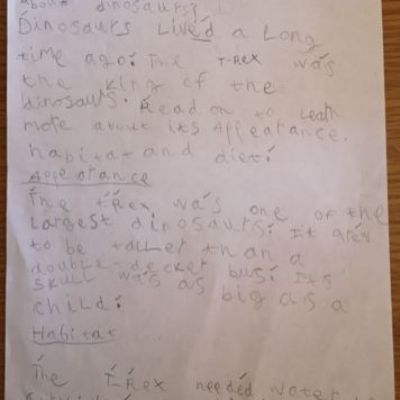 about dinosaurs?
Dinosaurs Lived a Long
time ago. The T-Rex was
the king of the
dinosaurs. Read on to learn
more about its Appearance,
habitat and diet.
Appearance
The T Rex was one of the
Largest dinosaurs. It grew
to be taller than a
double-decker bus. Its
skull was as big as a
child.
Habitat
The T Rex needed water